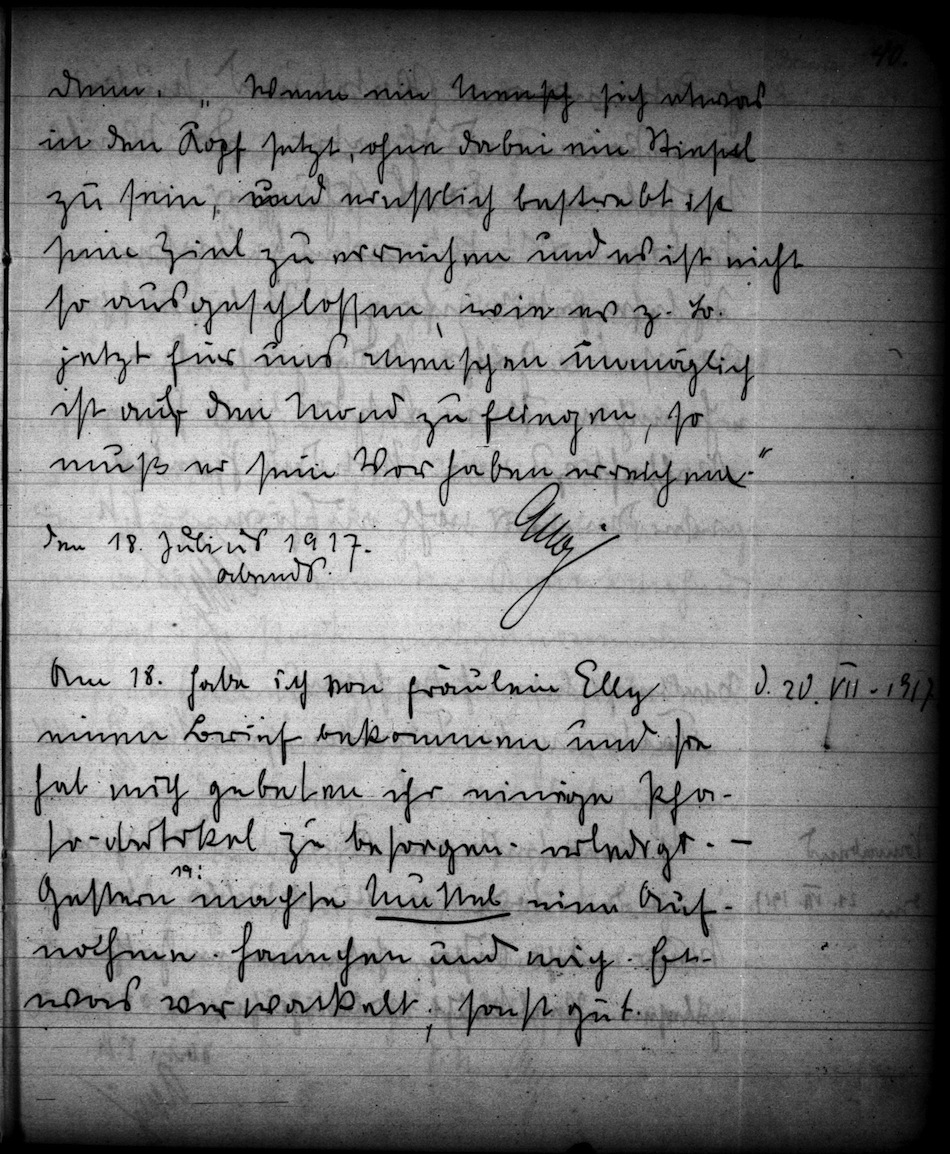 40.
denn. „Wenn ein Mensch sich etwas
in den Kopf setzt, ohne dabei ein Stiesel
zu sein, und ernstlich bestrebt ist
sein Ziel zu erreichen und es ist nicht
so ausgeschlossen, wie es z. B.
jetzt für uns Menschen unmöglich
ist auf den Mond zu fliegen, so
muß er sein Vorhaben erreichen.“
den 18. Julius 1917.
abends.
Am 18. habe ich von Fräulein Elly
d. 20. VII. 1917
einen Brief bekommen und sie
hat mich gebeten ihr einige Pho-
to-Artikel zu besorgen. erledigt. —
Gestern 19: machte Muttel eine Auf-
nahme. Hannchen und mich. Et-
was verwackelt, sonst gut.